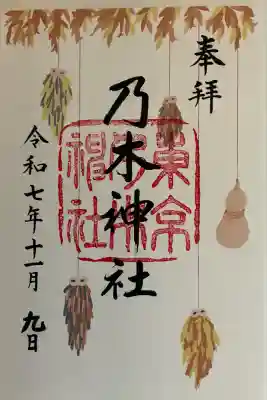 奉拝
乃木神社
東京
乃木
神社
令和七年十一月 九日